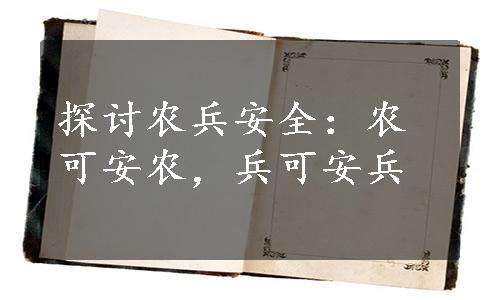 探讨农兵安全：农
可安农，兵可安兵